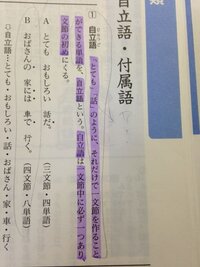 類
自立語・付属語
① 自立語
じりつご
「とても」「話」のように、それだけで一文節を作ること
ができる単語を、自立語という。自立語は一文節中に必ず一つあり、
文節の初めにくる。
A とても おもしろい 話だ。 (三文節・四単語)
B おばさんの 家には 車で 行く。 (四文節・八単語)
自立語…とても・おもしろい・話・おばさん・家・車・行く